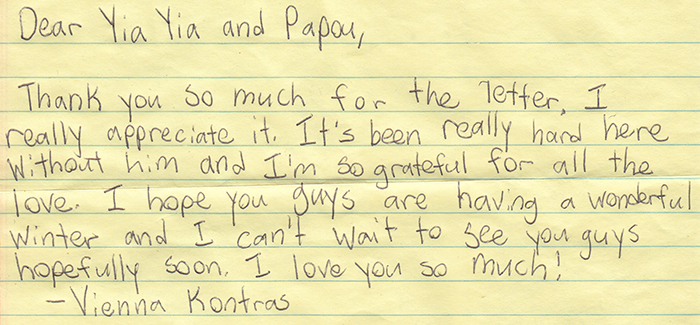 Dear Yia Yia and Papou,
Thank you so much for the letter, I
really appreciate it. It's been really hard here
without him and I'm so grateful for all the
love. I hope you guys are having a wonderful
winter and I can't wait to see you guys
hopefully soon. I love you so much!
- Vienna Kontras